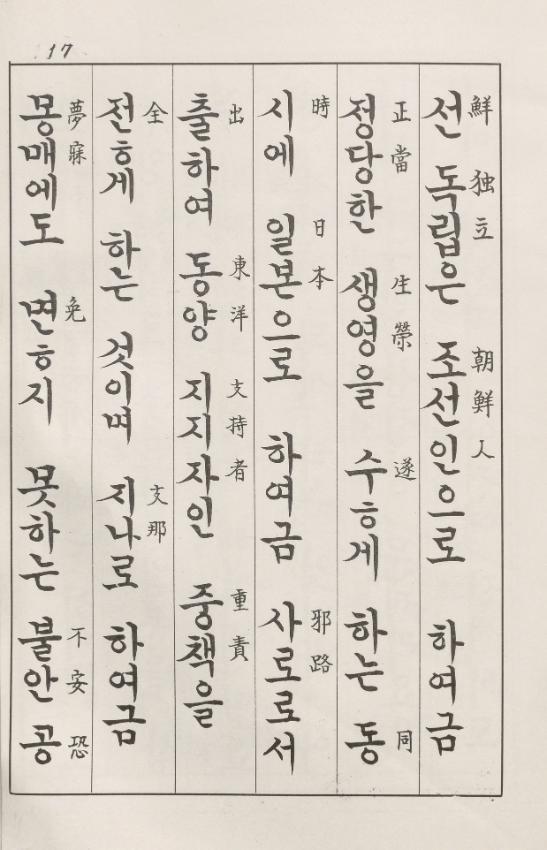 17
선 독립은 조선인으로 하여금
鮮 独立 朝鮮人
정당한 생영을 수ㅎ게 하는 동
正當 生榮 遂 同
시에 일본으로 하여금 사로로서
時 日本 邪路
출하여 동양 지지자인 중책을
出 東洋 支持者 重責
전ㅎ게 하는 것이며 지나로 하여금
全 支那
몽매에도 면ㅎ지 못하는 불안 공
夢寐 免 不安 恐